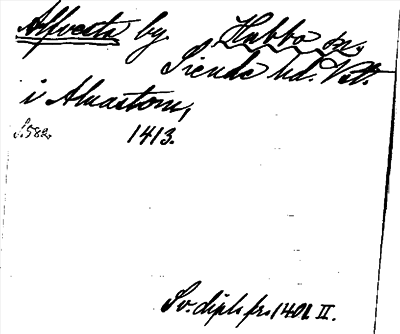 Alfvesta by. Hubbo sn,
Siende hd. Vstl.
i Aluastom,
s. 582. 1413.
Sv. dipl. fr. 1401 II.